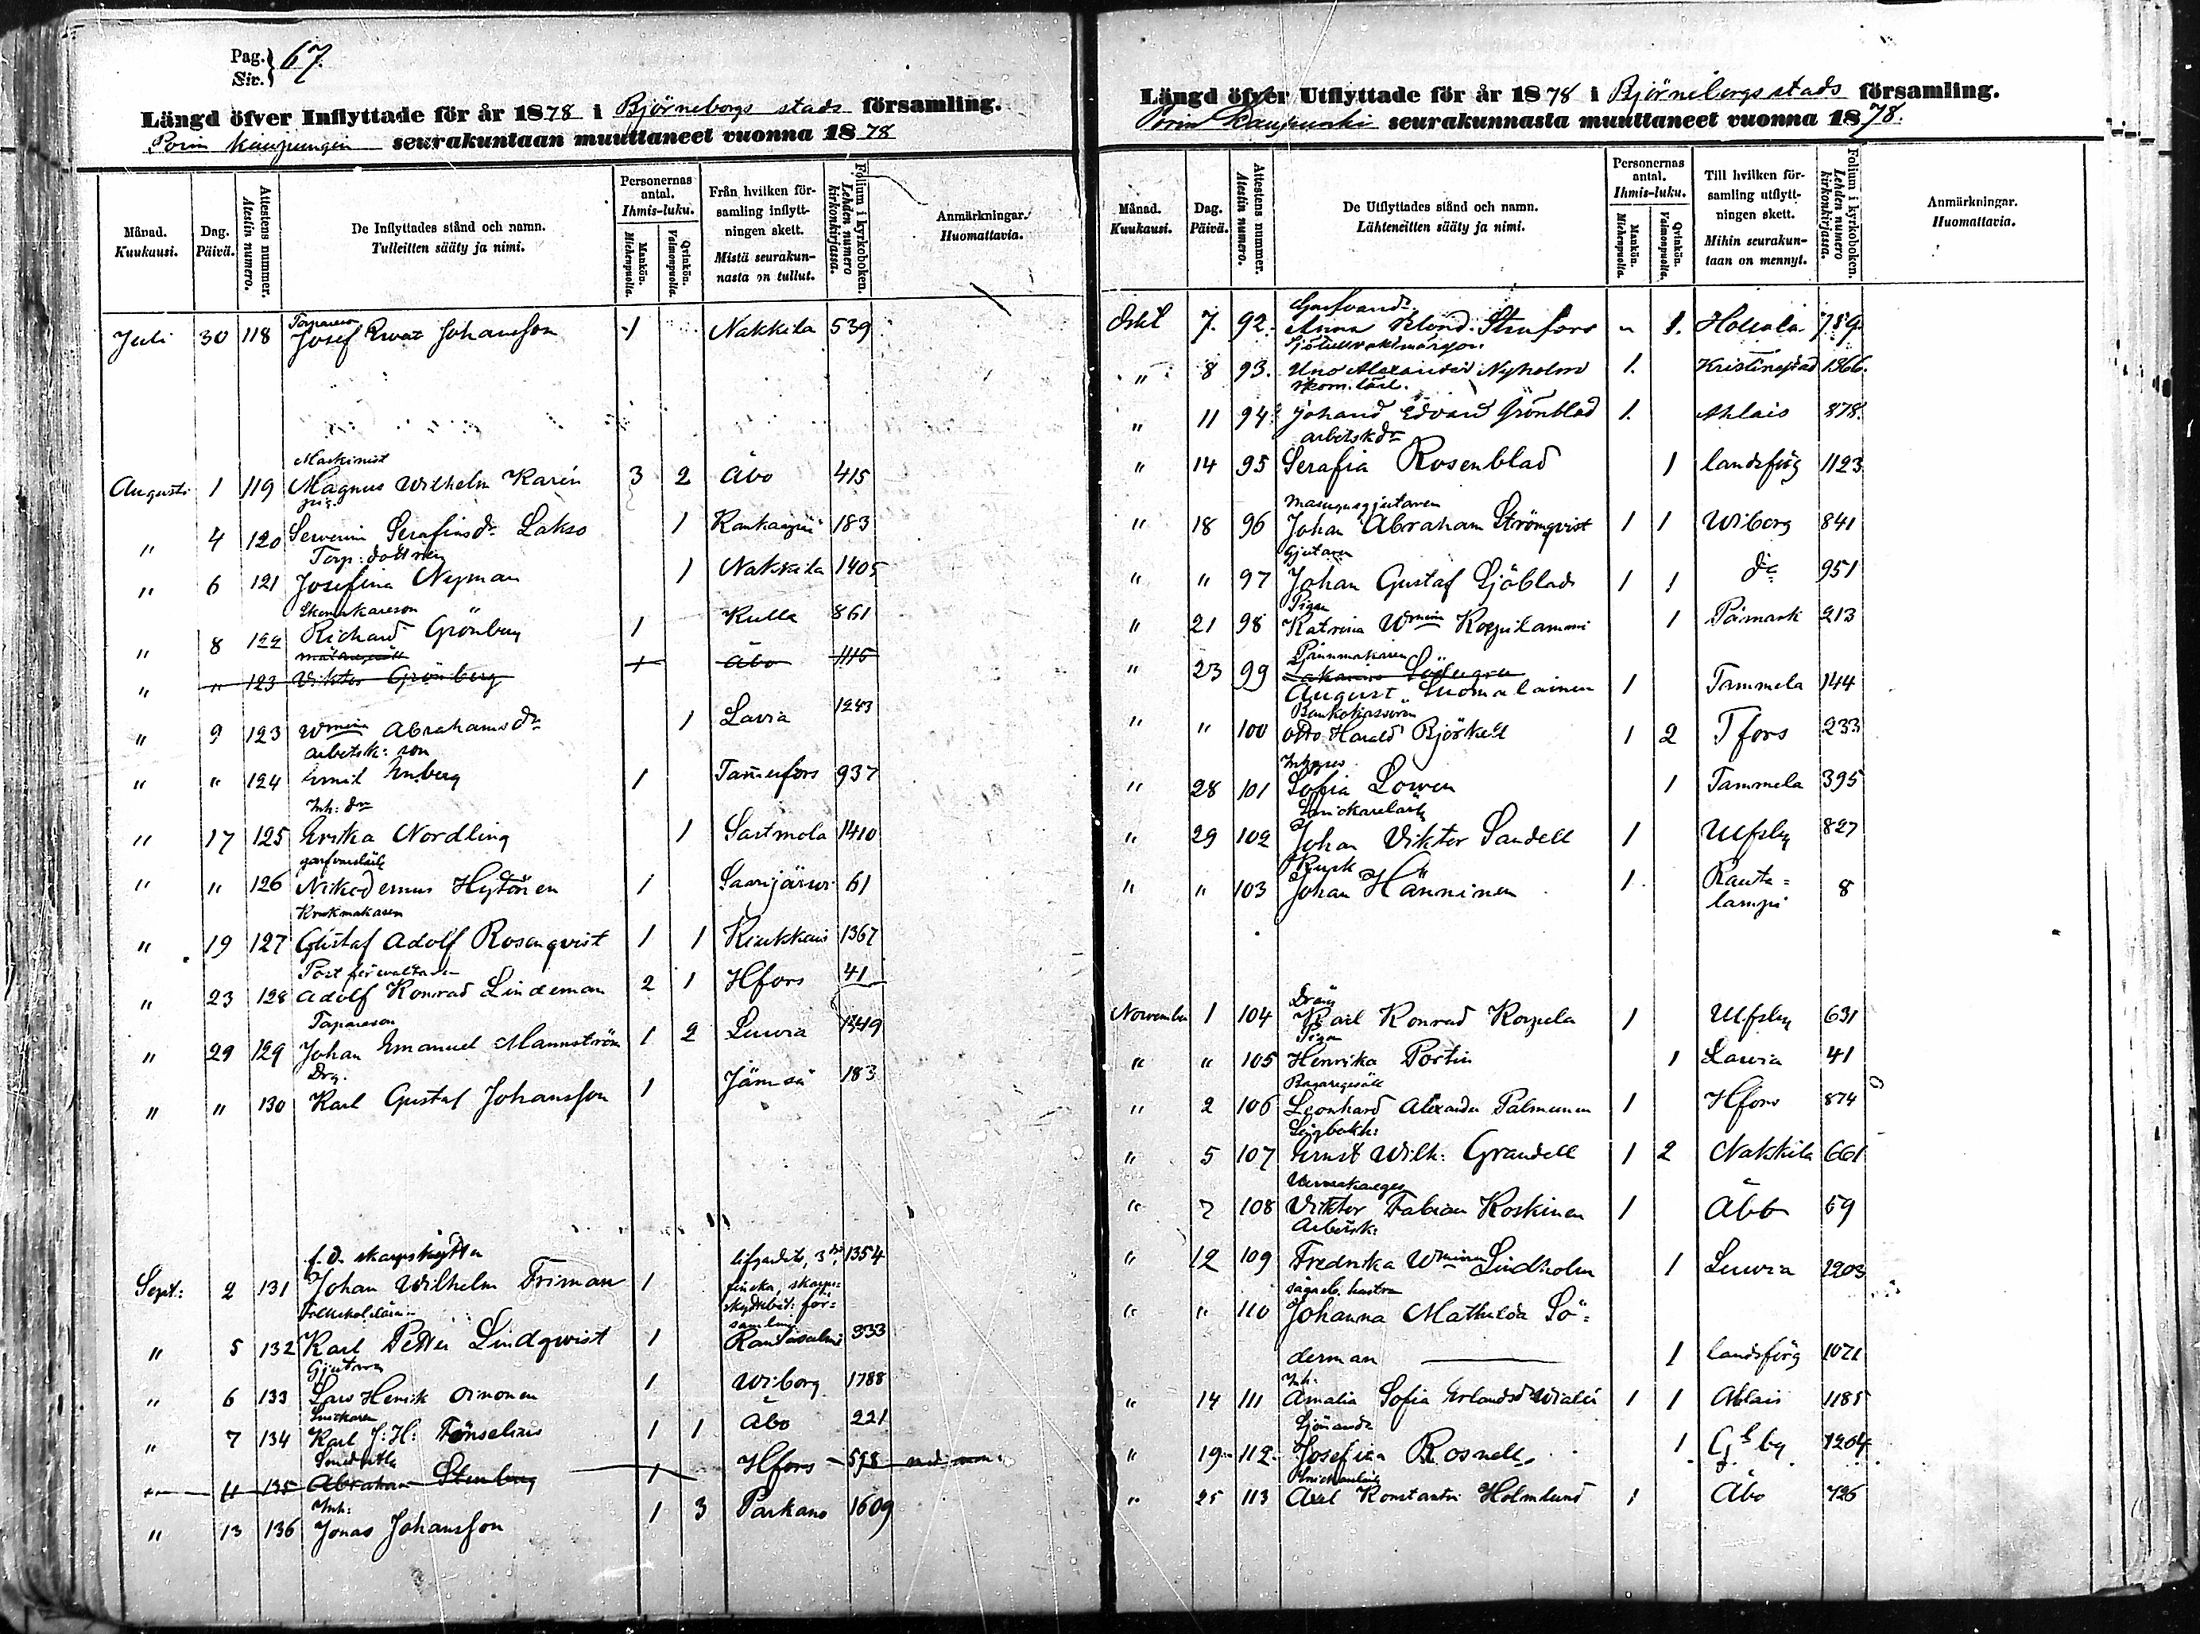 Pag. } 67.
Siv. }
Längd öfver Inflyttade för år 1878 i Björneborgs stads församling.
Porin kaupungin seurakuntaan muuttaneet vuonna 1878
Månad. Kuukausi.
Dag. Päivä.
Attestens nummer. Atestin numero.
De Inflyttades stånd och namn. Tulleitten sääty ja nimi.
Personernas antal. Ihmis-luku.
Mankön. Miehenpuolta.
Qvinkön. Vaimonpuolta.
Från hvilken församling inflyttningen skett. Mistä seurakunnasta on tullut.
Folium i kyrkoboken. Lehden numero kirkonkirjassa.
Anmärkningar. Huomattavia.
Torpareson
Juli 30 118 Josef Johansson 1 Nakkila 539
Maskinist
Augusti 1 119 Magnus Wilhelm Karén 3 2 Åbo 415
pig.
" 4 120 Serafinsdr. Lakso 1 Kankaanpää 183
Torp: dottren
" 6 121 Josefina Nyman 1 Nakkila 1405
Skomakareson
" 8 122 Richard Grönberg 1 Kulla 861
" " 123 Viktor Grönberg 1 Åbo 1115
" 9 123 Wmina Abrahamsdr 1 Lavia 1243
arbetsk: son
" " 124 Emil Enberg 1 Tammerfors 937
Inh: dr
" 17 125 Erika Nordling 1 Sastmola 1410
garfvarelärl
" " 126 Nikodemus Hytönen 1 Saarijärvi 61
Krukmakaren
" 19 127 Gustaf Adolf Rosenqvist 1 1 Kiukkais 1367
Post förvaltaren
" 23 128 Adolf Konrad Lindeman 2 1 Hfors 41
Torpareson
" 29 129 Johan Emanuel Mannström 1 2 Luvia 1349
Drg.
" " 130 Karl Gustaf Johansson 1 Jämsä 183
f. d. skarpskytten
Sept: 2 131 Johan Wilhelm Friman 1 finska, skarpskyttebat: församling 1354
" 5 132 Karl Petter Lindqvist 1 Rantasalmi 333
Gjutaren
" 6 133 Lars Henrik Oinonen 1 Wiborg 1788
Snickaren
" 7 134 Karl J: H: Fönselius 1 1 Åbo 221
" 11 135 Abraham Stenberg 1 Hfors 598
Inh:
" 13 136 Jonas Johansson 1 3 Parkano 1609
Längd öfver Utflyttade för år 1878 i Björneborgs stads församling.
Porin kaupunki seurakunnasta muuttaneet vuonna 1878.
Månad. Kuukausi.
Dag. Päivä.
Attestens nummer. Atestin numero.
De Utflyttades stånd och namn. Lähteneitten sääty ja nimi.
Personernas antal. Ihmis-luku.
Mankön. Miehenpuolta.
Qvinkön. Vaimonpuolta.
Till hvilken församling utflyttningen skett. Mihin seurakuntaan on mennyt.
Folium i kyrkoboken. Lehden numero kirkonkirjassa.
Anmärkningar. Huomattavia.
Oktb 7. 92. Anna Stenfors " 1. Hollola 789
" 8 93. Uno Alexander Nyholm 1. Kristinestad 1366.
skom. lärl.
" 11 94 Johand Edvard Grönblad 1. Ahlais 878.
arbetsk dr
" 14 95 Serafia Rosenblad 1 landsförs 1123
Masugnsgjutaren
" 18 96 Johan Abraham Strömqvist 1 1 Wiborg 841
Gjutaren
" " 97 Johan Gustaf Sjöblad 1 1 do 951
Pigan
" 21 98 Katrina Wmina Korpilammi 1 Påmark 213
" 23 99 Zakarias Södergren
August Suomalainen 1 Tammela 144
Bankokassören
" " 100 Otto Harald Björkell 1 2 Tfors 233
" 28 101 Sofia Lowen 1 Tammela 395
Snickarelärl
" 29 102 Johan Viktor Sandell 1 Ulfsby 827
Kusk
" " 103 Johan Hänninen 1 Rautalampi 8
Dräng
November 1 104 Karl Konrad Korpela 1 Ulfsby 631
Pigan
" " 105 Henrika Portin 1 Lavia 41
Bagaregesäll
" 2 106 Leonhard Alexander Palmunen 1 Hfors 874
" 5 107 Ernst Wilh: Grandell 1 2 Nakkila 661
" 7 108 Viktor Fabian Koskinen 1 Åbo 59
Arbetsk:
" 12 109 Fredrika Wmina Lindholm 1 Luvia 1203
sågarb. hustru
" " 110 Johanna Mathilda Sö-
derman 1 landsförs 1071
Inh:
" 14 111 Amalia Sofia Erlandsd 1 1 Ahlais 1185
" 19 112 Josefina Rosnell 1 Glby 1204
Snickarelärl
" 25 113 Axel Konstantin Holmlund 1 Åbo 726